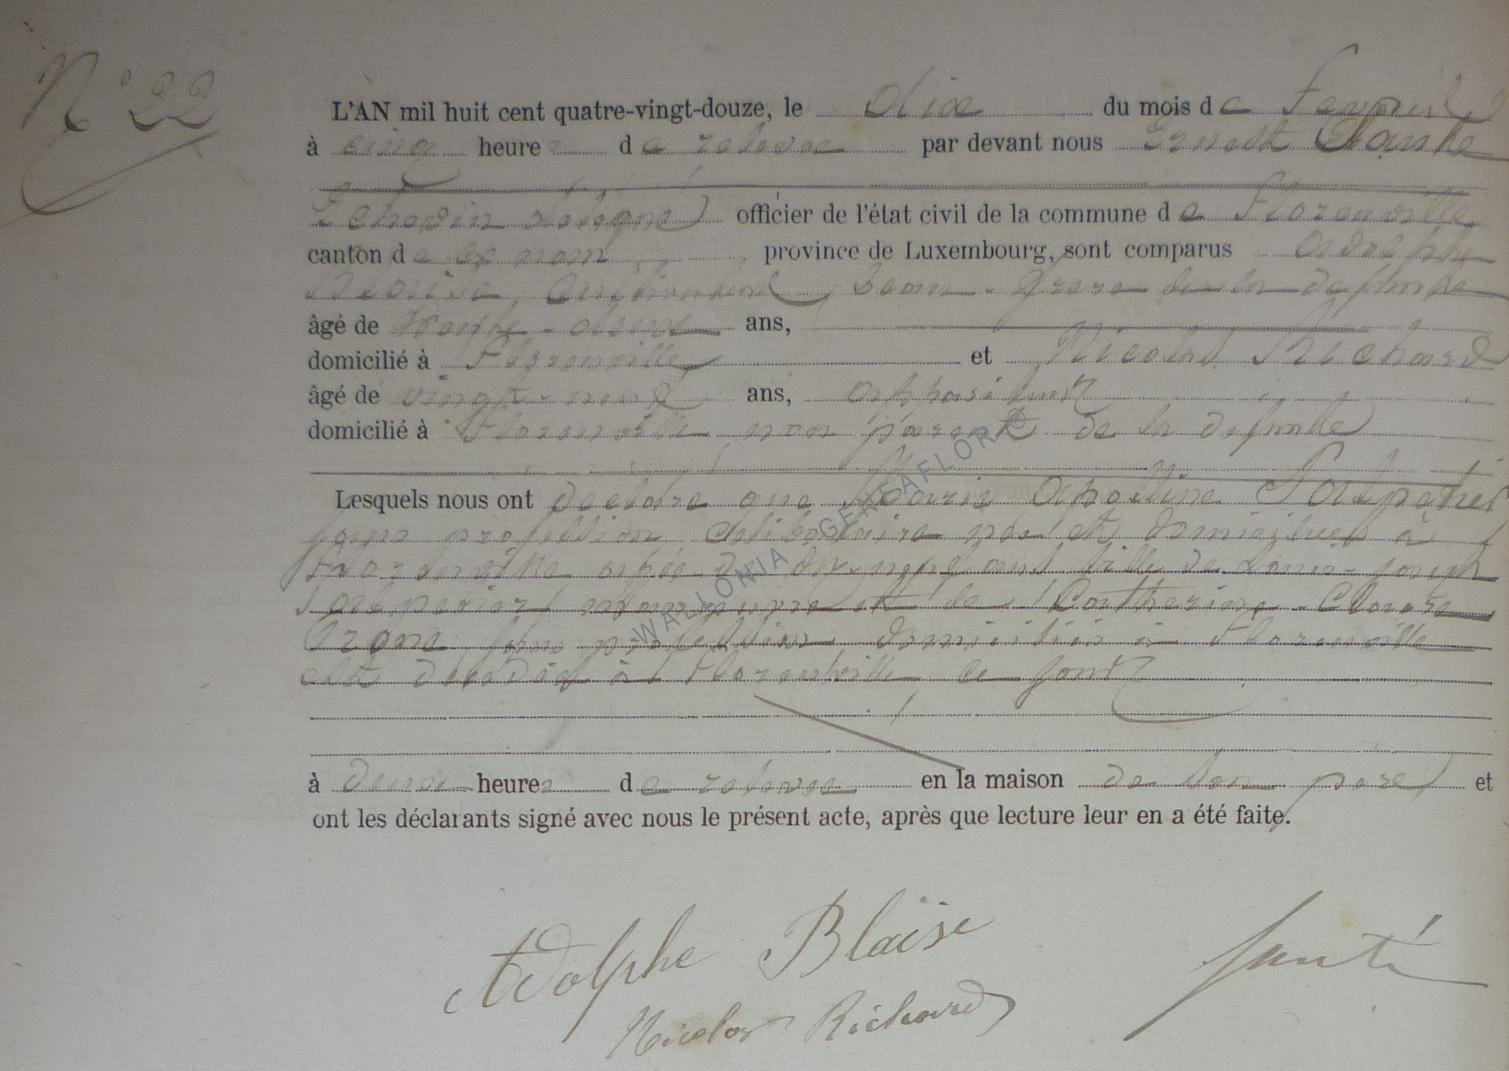 N° 22
L'AN mil huit cent quatre-vingt-douze, le dix du mois de Fevrier
à cinq heures de relevée par devant nous Ernest
Echevin délégué officier de l'état civil de la commune de Florenville
canton de ce nom province de Luxembourg, sont comparus Adolphe
Blaise, beau-frère de la défunte
âgé de trente-deux ans,
domicilié à Florenville et Nicolas Richard
âgé de vingt-neuf ans,
domicilié à Florenville non parent de la défunte
Lesquels nous ont déclaré que Marie Apolline
sans profession célibataire née et domiciliée à
Florenville âgée de dix-neuf ans fille de Louis-Joseph
et de Catherine-
sans profession domiciliés à Florenville
est décédée à Florenville ce jour
à deux heures de relevée en la maison de son père et
ont les déclarants signé avec nous le présent acte, après que lecture leur en a été faite.
Adolphe Blaise
Nicolas Richard
WALLONIA GENEAFLOR ©